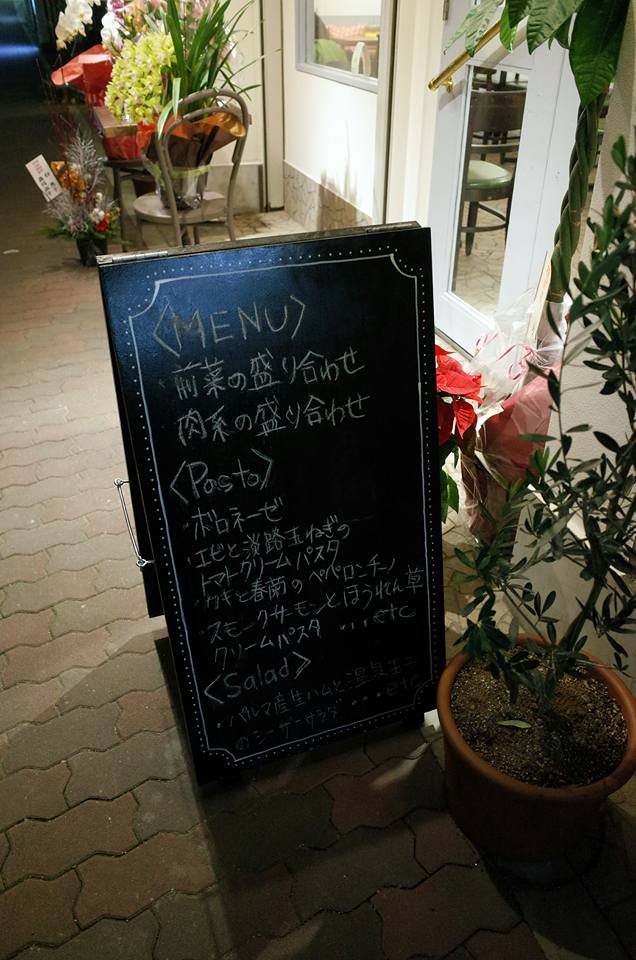 〈MENU〉
・前菜の盛り合わせ
・肉系の盛り合わせ
〈Pasta〉
・ボロネーゼ
・エビと淡路玉ねぎの
トマトクリームパスタ
・カキと春菊のペペロンチーノ
・スモークサーモンとほうれん草
クリームパスタ ・・・etc
〈Salad〉
・パルマ産生ハムと温泉玉子
のシーザーサラダ ・・・etc